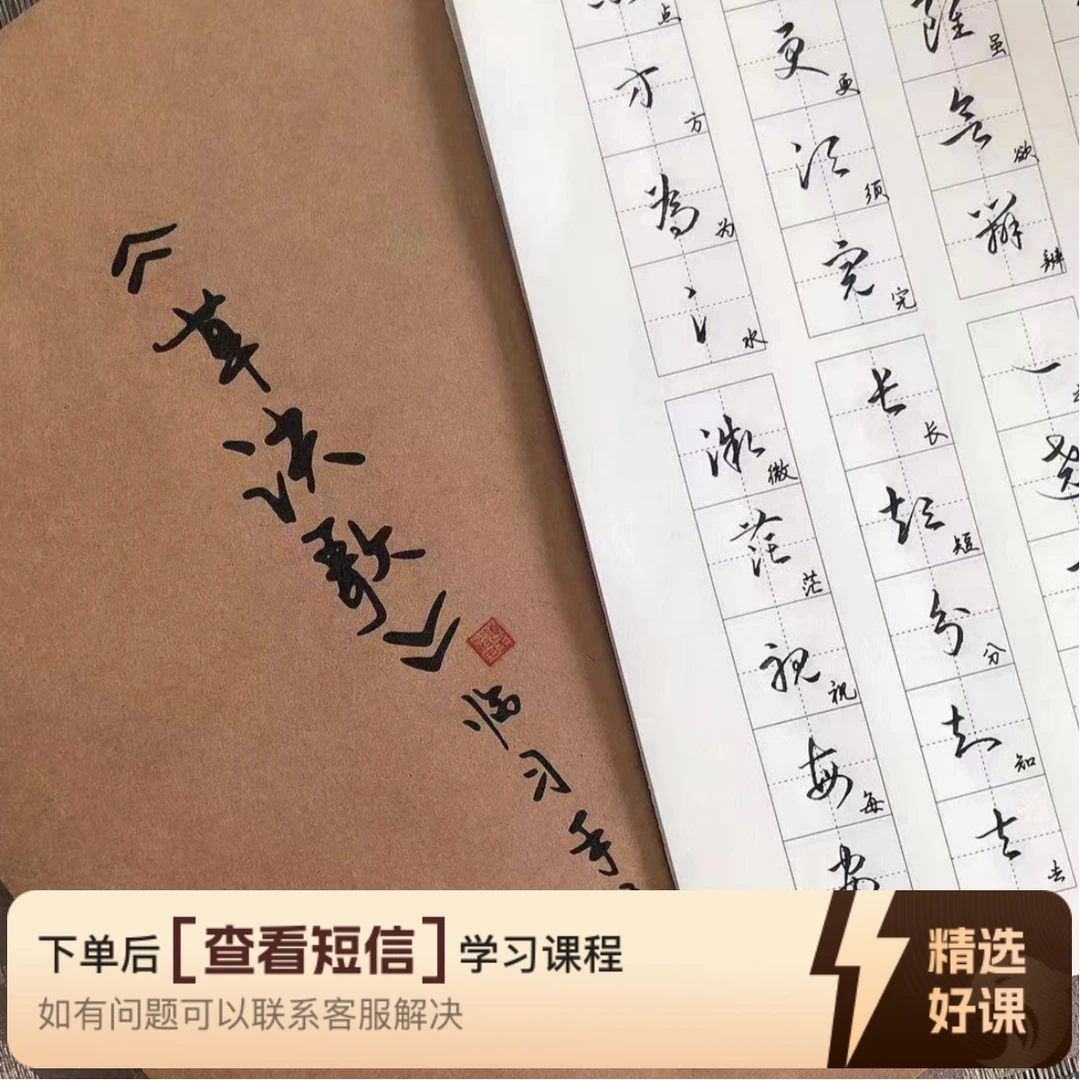 《草决歌》
临习手
点
方 方
为 为
水 水
微 微
茫 茫
祝 祝
每 每
更 更
须 须
完 完
长 长
短 短
分 分
知 知
去 去
虽 虽
欲 欲
辨 辨
一
下单后[查看短信]学习课程
如有问题可以联系客服解决
精选
好课